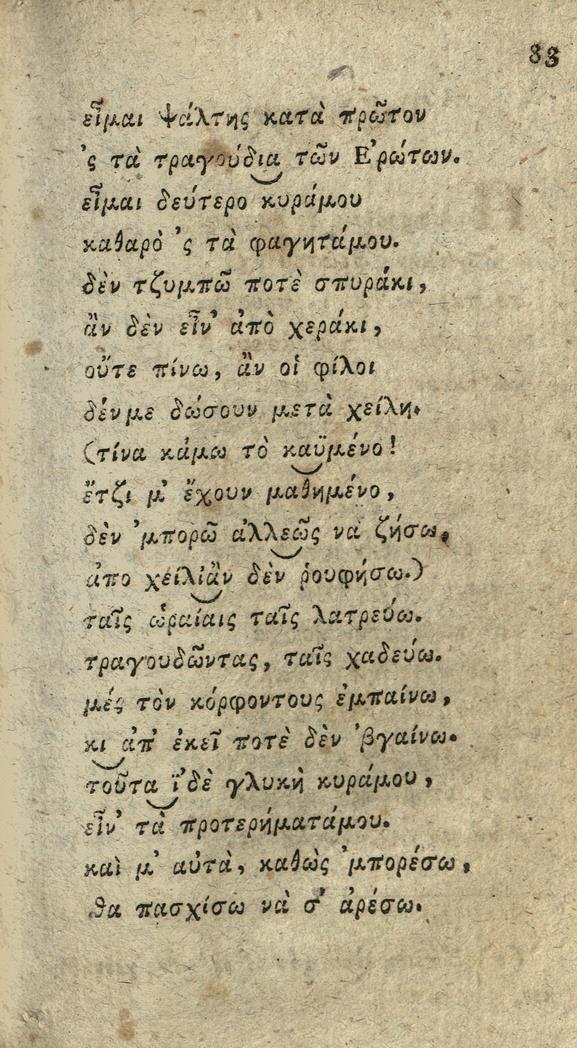 83
εἶμαι ψάλτης κατὰ πρῶτον
'ς τὰ τραγούδια τῶν Ἐρώτων.
εἶμαι δεύτερο κυράμου
καθαρὸ 'ς τὰ φαγητάμου.
δὲν τζυμπῶ ποτὲ σπυράκι,
ἂν δὲν εἶν' ἀπὸ χεράκι,
οὔτε πίνω, ἂν οἱ φίλοι
δένμε δώσουν μετὰ χείλη.
(τίνα κάμω τὸ καϋμένο!
ἔτζι μ' ἔχουν μαθημένο,
δὲν 'μπορῶ ἀλλεῶς νὰ ζήσω,
ἀπο χείλιἂν δὲν ῥουφήσω.)
ταῖς ὡραίαις ταῖς λατρεύω.
τραγουδῶντας, ταῖς χαδεύω.
μές τὸν κόρφοντους ἐμπαίνω,
κι ἀπ' ἐκεῖ ποτὲ δὲν 'βγαίνω.
τοῦτα ἴδὲ γλυκὴ κυράμου,
εἶν' τὰ προτερήματάμου.
καὶ μ' αὐτὰ, καθὼς 'μπορέσω,
θα πασχίσω νὰ σ' ἀρέσω.